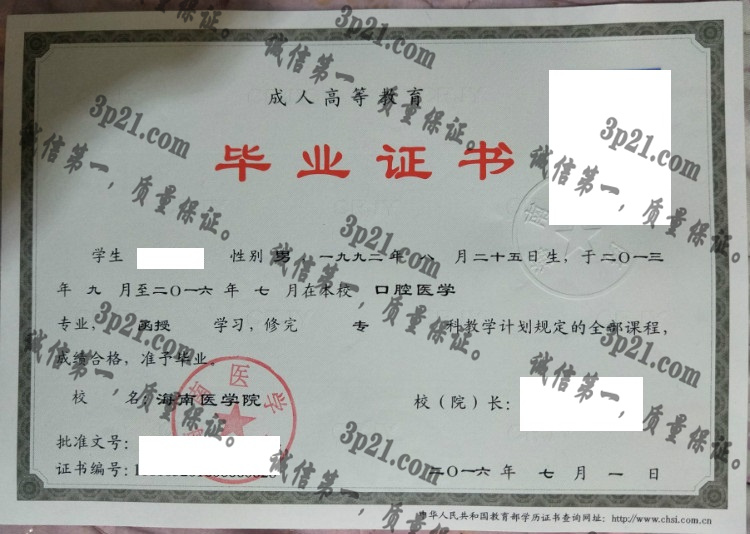 成人高等教育
毕业证书
学生 性别 男 一九九二年 八 月二十五日生，于二〇一三
年 九 月至二〇一六 年 七 月在本校 口腔医学
专业， 函授 学习，修完 专 科教学计划规定的全部课程，
成绩合格，准予毕业。
校 名：海南医学院 校（院）长：
批准文号：
证书编号：
二〇一六 年 七 月 一 日
中华人民共和国教育部学历证书查询网址：http://www.chsi.com.cn
海南医学
3p21.com
诚信第一，质量保证。
3p21.com
诚信第一，质量保证。
3p21.com
诚信第一，质量保证。
3p21.com
诚信第一，质量保证。
3p21.com
诚信第一，质量保证。
3p21.com
诚信第一，质量保证。
3p21.com
诚信第一，质量保证。
3p21.com
诚信第一，质量保证。